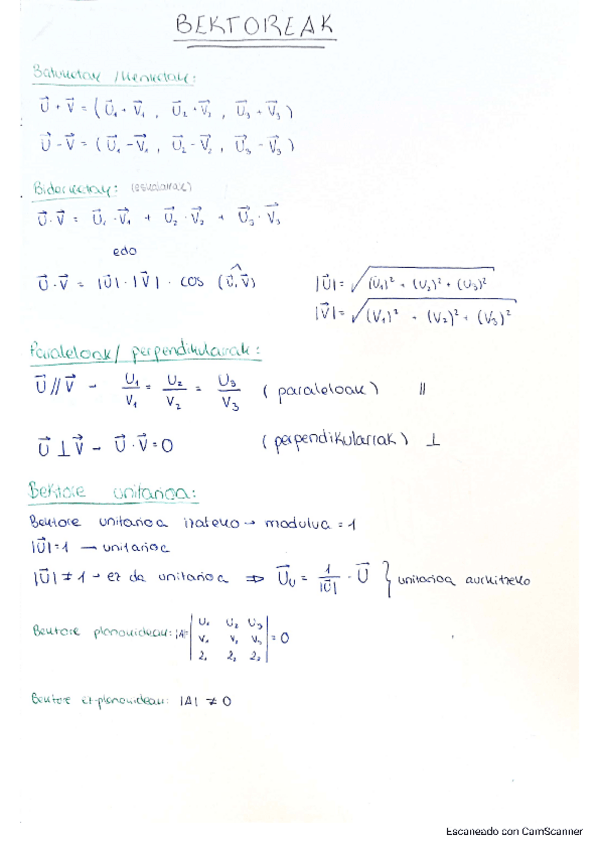 BEKTOREAK
Batuketak / Kenketak:
U⃗ + V⃗ = ( U⃗₁ + V⃗₁ , U⃗₂ + V⃗₂ , U⃗₃ + V⃗₃ )
U⃗ - V⃗ = ( U⃗₁ - V⃗₁ , U⃗₂ - V⃗₂ , U⃗₃ - V⃗₃ )
Biderketak: (eskalarrak)
U⃗ · V⃗ = U⃗₁ · V⃗₁ + U⃗₂ · V⃗₂ + U⃗₃ · V⃗₃
edo
U⃗ · V⃗ = |U⃗| · |V⃗| · cos (u⃗, v⃗) |U⃗| = √(U₁)² + (U₂)² + (U₃)²
|V⃗| = √(V₁)² + (V₂)² + (V₃)²
Paraleloak / perpendikularrak:
U⃗ // V⃗ - U₁/V₁ = U₂/V₂ = U₃/V₃ ( paraleloak ) //
U⃗ ⊥ V⃗ - U⃗ · V⃗ = 0 ( perpendikularrak ) ⊥
Bektore unitarioa:
Bektore unitarioa izateko → modulua = 1
|U⃗| = 1 → unitarioa
|U⃗| ≠ 1 → ez da unitarioa ⇒ U⃗ᵤ = 1/|U⃗| · U⃗ } unitarioa aurkitzeko
Bektore planokideak: |A| = | U₁ U₂ U₃
V₁ V₂ V₃ | = 0
Z₁ Z₂ Z₃ |
Bektore ez-planokideak: |A| ≠ 0
Escaneado con CamScanner